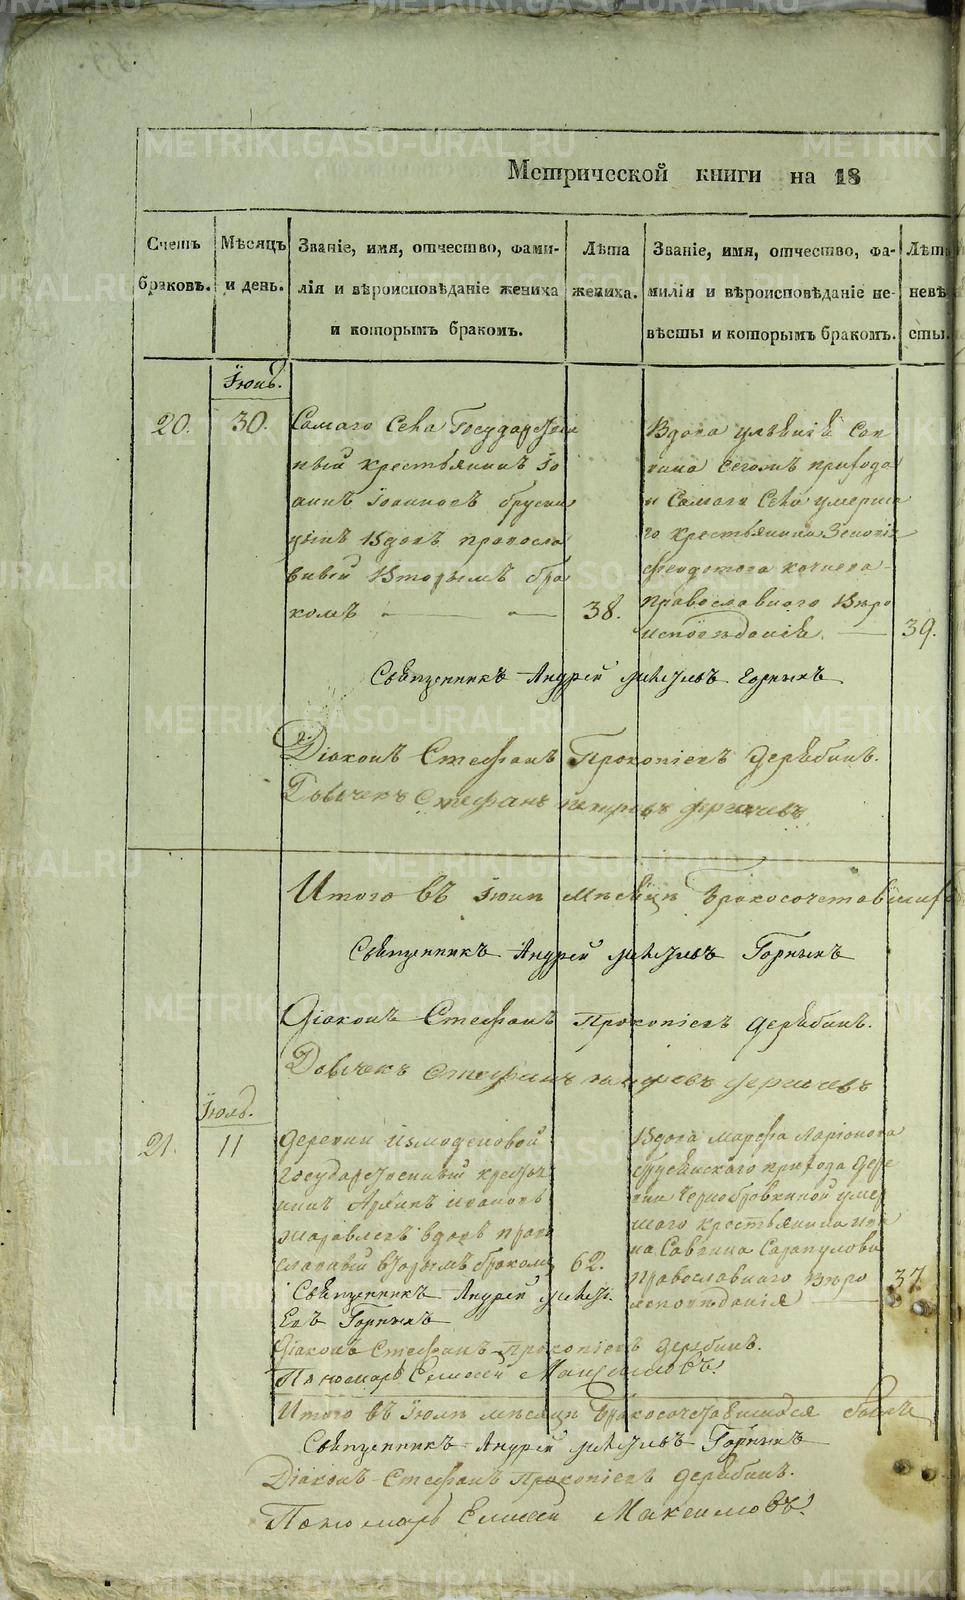 Метрической книги на 18
Счетъ браковъ.
Мѣсяцъ и день.
Званіе, имя, отчество, фами-
лія и вѣроисповѣданіе жениха
и которымъ бракомъ.
Лѣта жениха.
Званіе, имя, отчество, фа-
милія и вѣроисповѣданіе не-
вѣсты и которымъ бракомъ.
Лѣта невѣ-
сты.
Іюнь.
20. 30.
Самаго Села Государствен
ный крестьянинъ Іо
аннъ Іоанновъ Брусни
цынъ Вдовъ православ
вный Вторымъ бра
комъ
38.
Вдова
сегожъ прихода
и Самаго Села умерша
го крестьянина
Православнаго Вѣро
исповѣданія
39.
Священникъ Андрей Горныхъ
Діаконъ Стефанъ Прокопіевъ Дерябинъ.
Дьячекъ Стефанъ Петровъ
Итого въ Іюнѣ мѣсяцѣ Бракосочетавшихся
Священникъ Андрей Горныхъ
Діаконъ Стефанъ Прокопіевъ Дерябинъ.
Дьячекъ Стефанъ Петровъ
Іюль.
21. 11
Деревни Измоденовой
Государственный крестья
нинъ Ивановъ
Журавлевъ вдовъ право
славный вторымъ бракомъ
62.
Вдова Марфа Ларіонова
прихода Дере
вни Чернобровкиной умер
шаго крестьянина
Саввина Сарапулова
Православнаго Вѣро
исповѣданія
37.
Священникъ Андрей
Горныхъ
Діаконъ Стефанъ Прокопіевъ Дерябинъ.
Пономарь Елисей Максимовъ.
Итого въ Іюлѣ мѣсяцѣ Бракосочетавшихся
Священникъ Андрей Горныхъ
Діаконъ Стефанъ Прокопіевъ Дерябинъ.
Пономарь Елисей Максимовъ.
METRIKI.GASO-URAL.RU